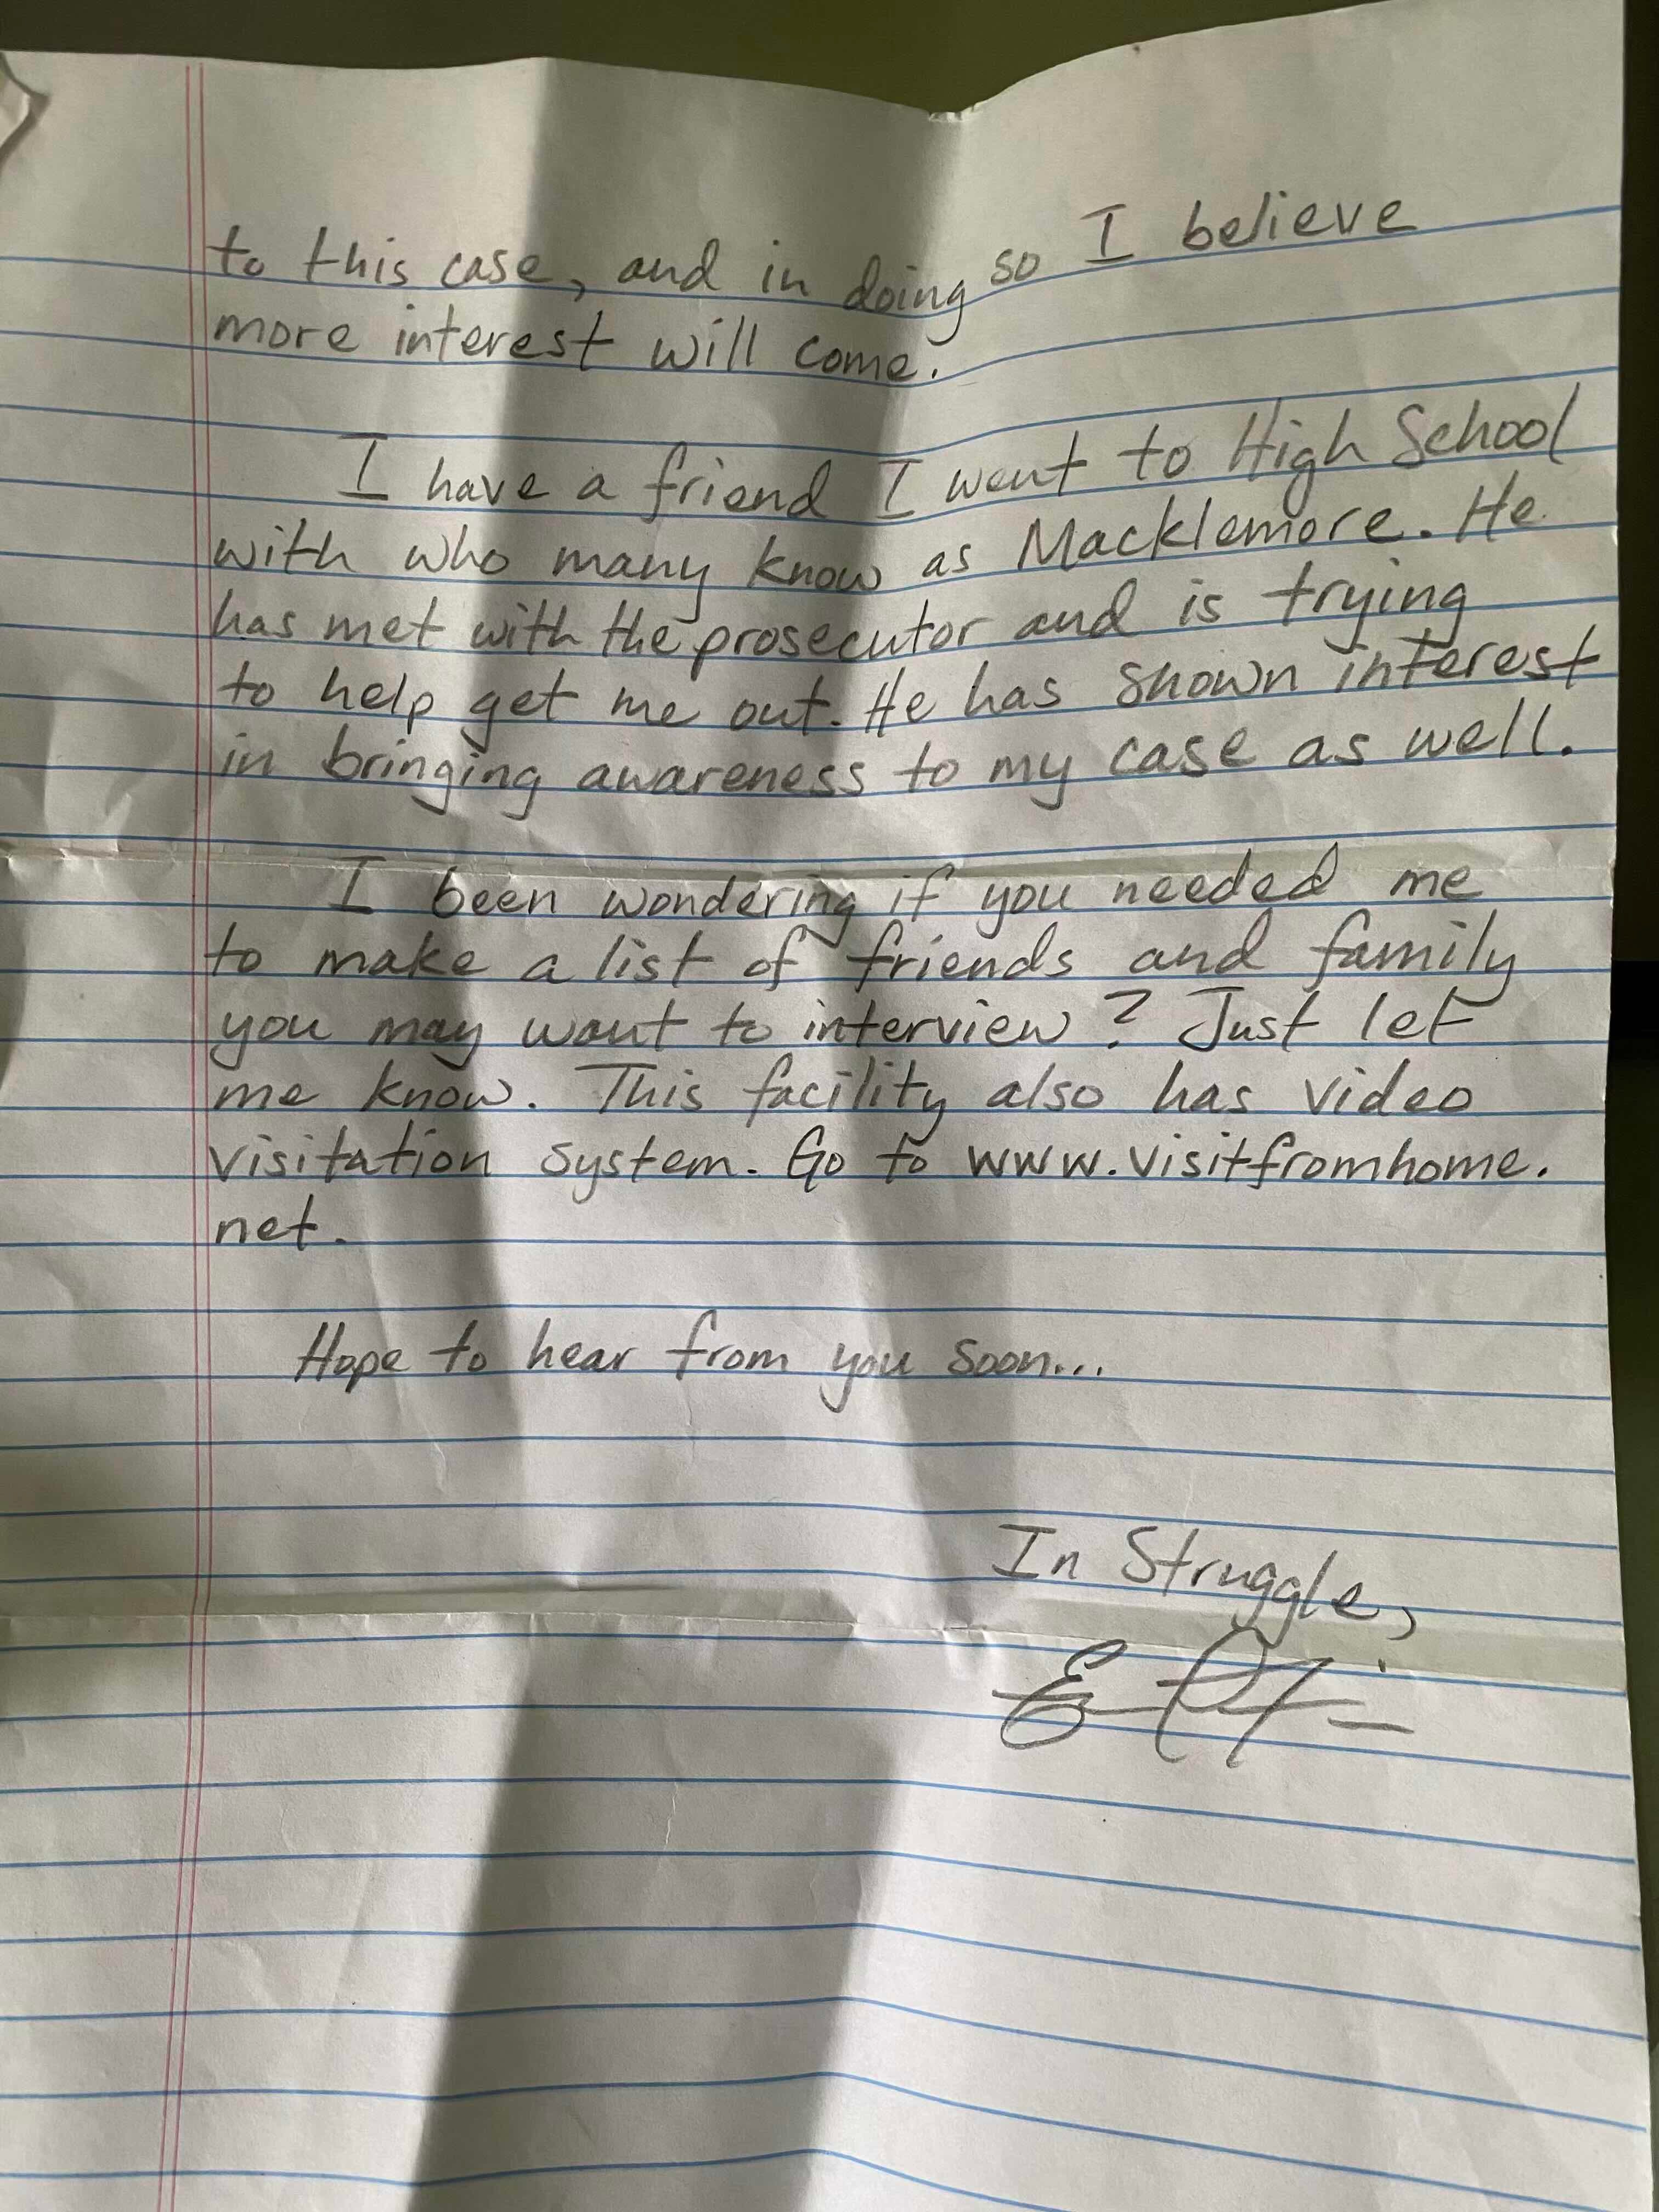 to this case, and in doing so I believe
more interest will come.
I have a friend I went to High School
with who many know as Macklemore. He
has met with the prosecutor and is trying
to help get me out. He has shown interest
in bringing awareness to my case as well.
I been wondering if you needed me
to make a list of friends and family
you may want to interview? Just let
me know. This facility also has video
visitation system. Go to www.visitfromhome.
net.
Hope to hear from you soon...
In Struggle,